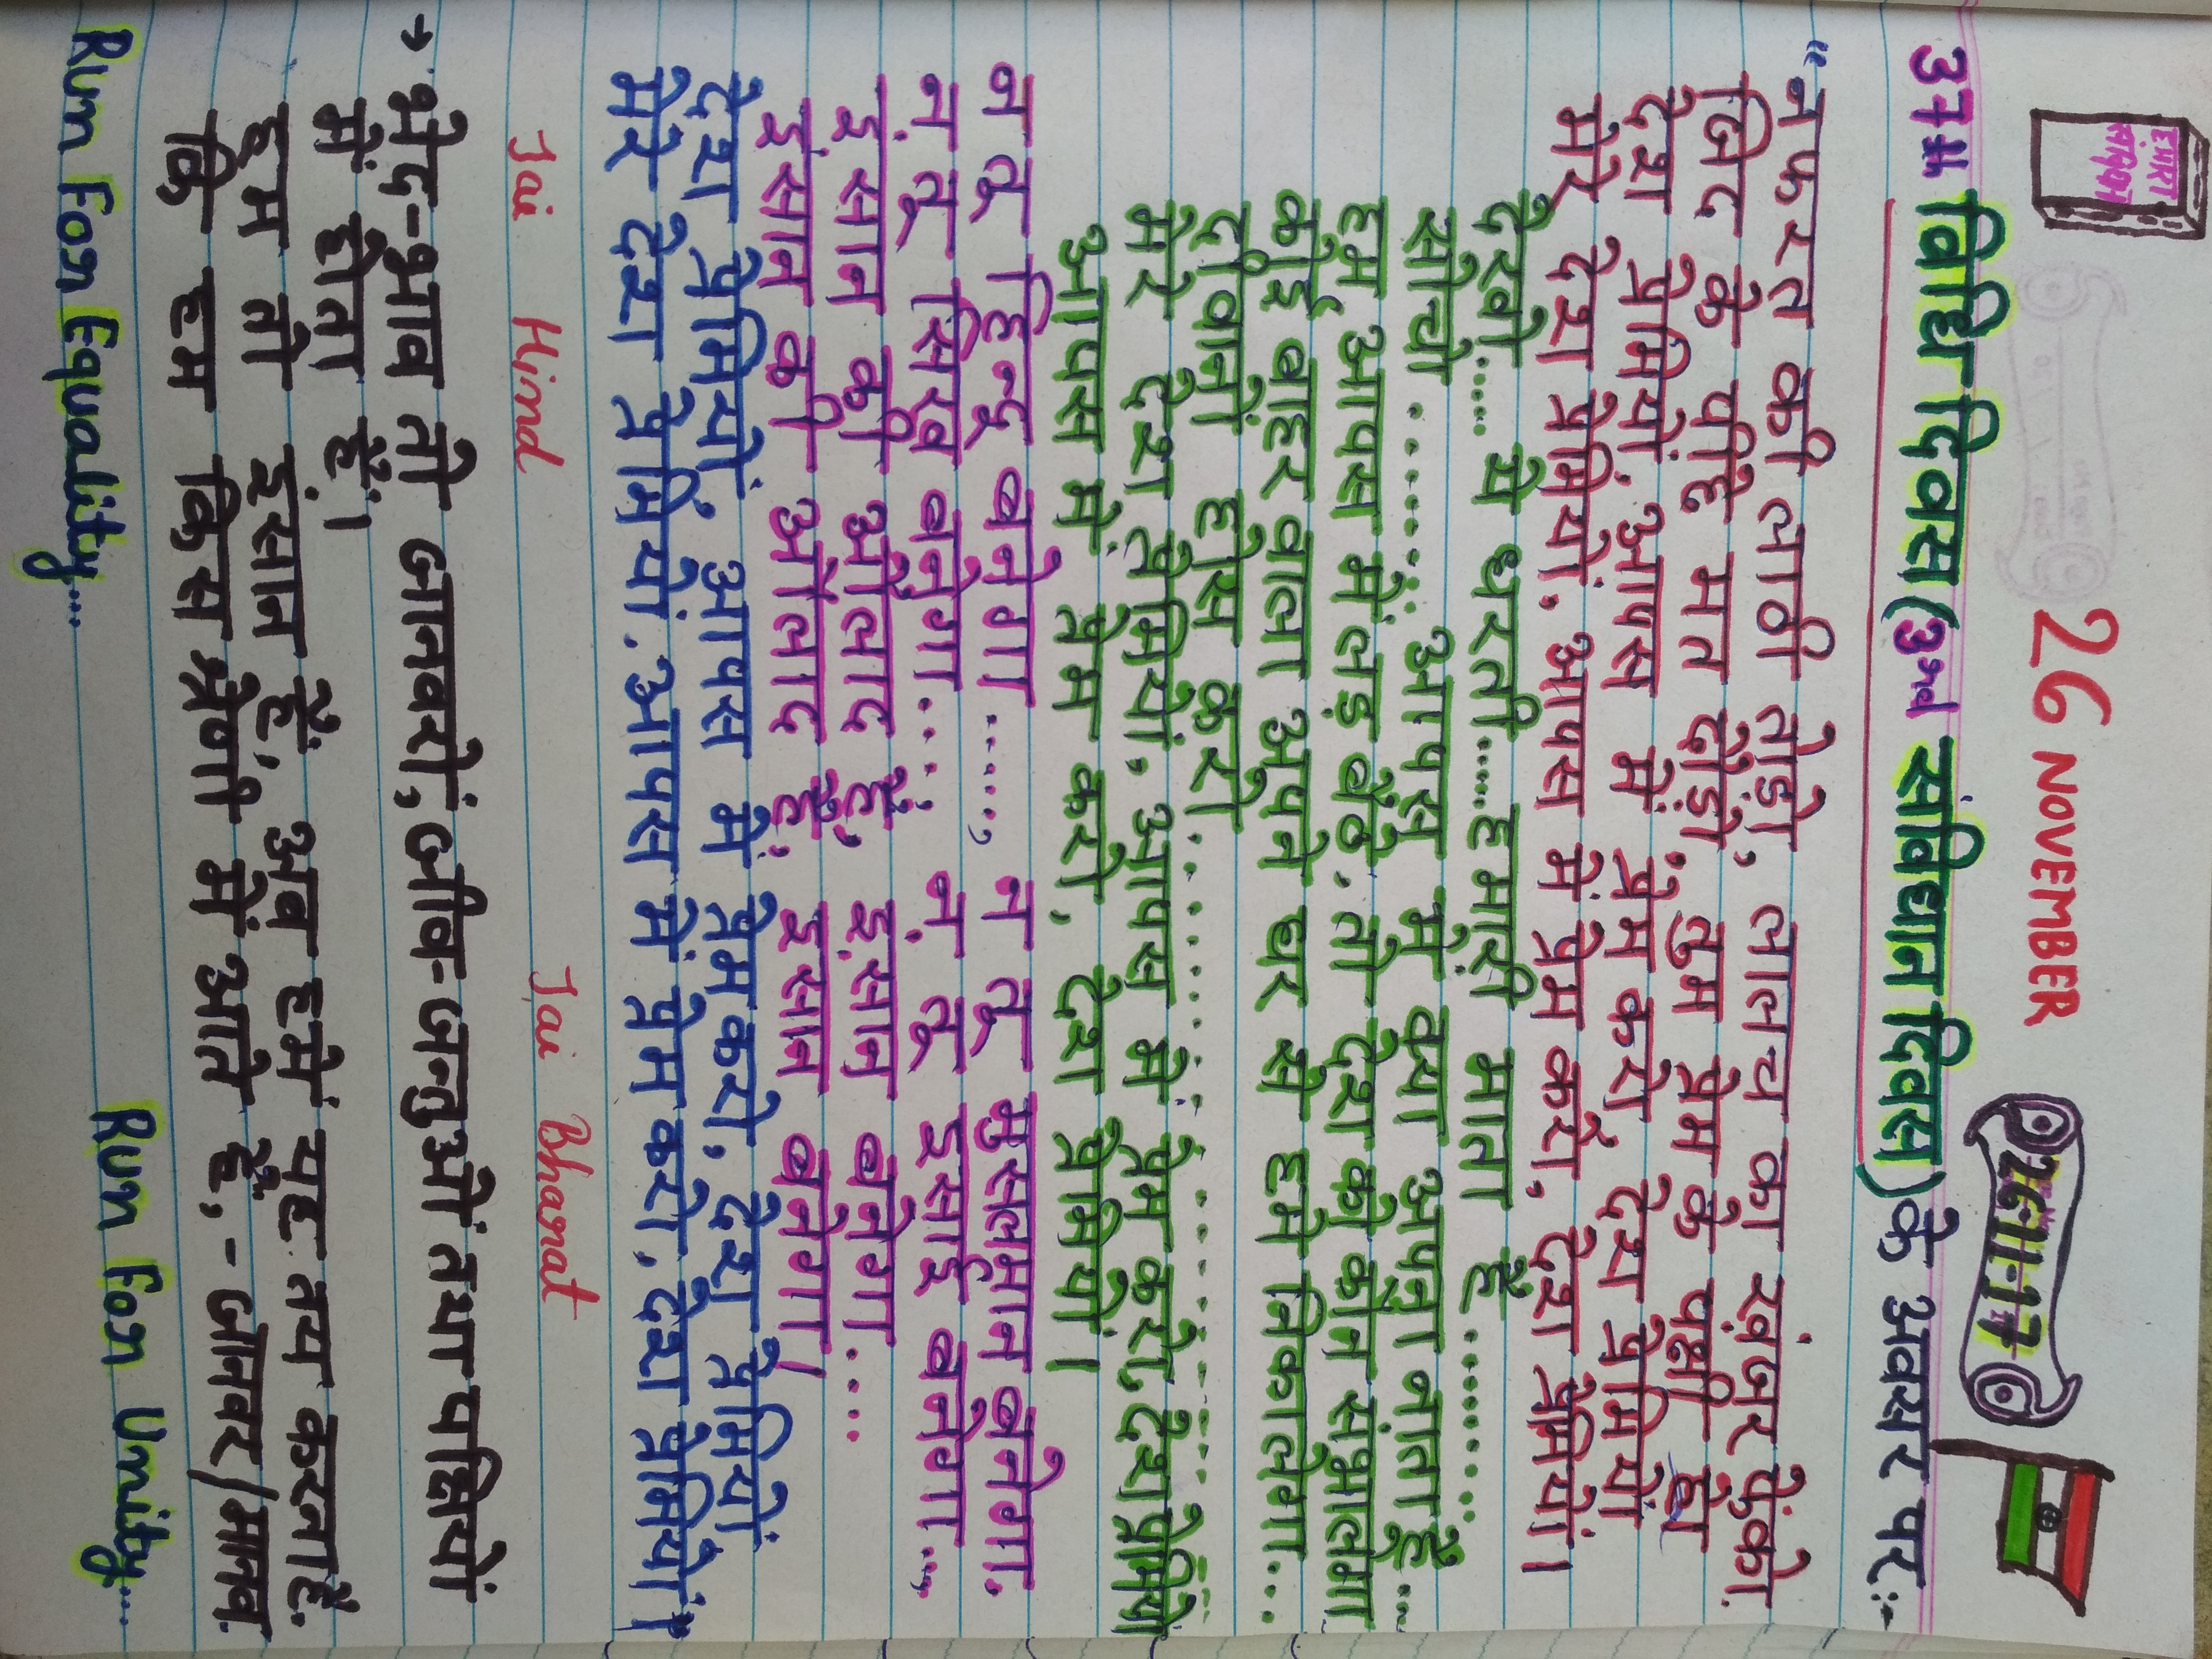 हमारा संविधान
26 NOVEMBER
26-11-17
37th विधि दिवस (3rd संविधान दिवस) के अवसर पर:-
"नफरत की लाठी तोड़ो, लालच का खंजर फेंको.
जिद के पीछे मत दौड़ो, तुम प्रेम के पंछी हो
देश प्रेमियों, आपस में प्रेम करो, देश प्रेमियों
मेरे देश प्रेमियों, आपस में प्रेम करो, देश प्रेमियों।
देखो..... ये धरती..... हमारी माता है..........
सोचो .......... आपस में क्या अपना नाता है...
हम आपस में लड़ बैठे, तो देश को कौन संभालेगा
कोई बाहर वाला अपने घर से हमें निकालेगा...
दीवानो होश करो..............................
मेरे देश प्रेमियों, आपस में प्रेम करो, देश प्रेमियों
आपस में प्रेम करो, देश प्रेमियों।
न तू हिन्दू बनेगा ....., न तू मुसलमान बनेगा,
न तू सिख बनेगा....., न तू ईसाई बनेगा....,
इंसान की औलाद है, इंसान बनेगा....
इंसान की औलाद है, इंसान बनेगा।
देश प्रेमियों, आपस में प्रेम करो, देश प्रेमियों
मेरे देश प्रेमियों, आपस में प्रेम करो, देश प्रेमियों।"
Jai Hind Jai Bharat
→ भेद-भाव तो जानवरों, जीव-जन्तुओं तथा पक्षियों
में होता है।
हम तो इंसान हैं, अब हमें यह तय करना है.
कि हम किस श्रेणी में आते हैं, - जानवर/मानव
Run For Equality.... Run For Unity....